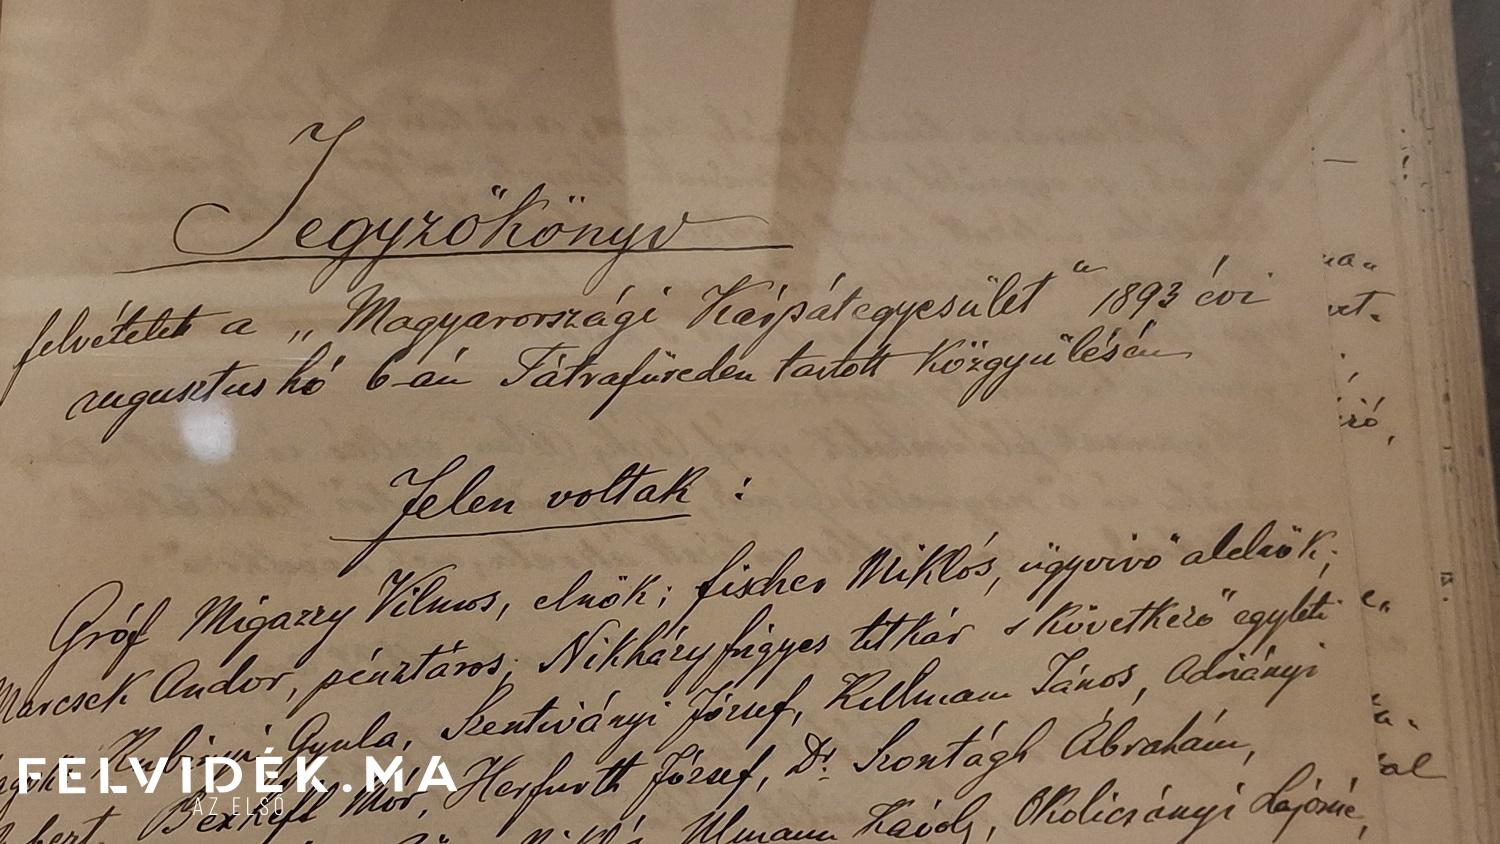 Jegyzőkönyv
felvételett a „Magyarországi Kárpátegyesület" 1893 évi
augusztus hó 6-án Tátrafüreden tartott közgyűlésén
Jelen voltak :
Gróf Migazzy Vilmos, elnök; fischer Miklós, ügyvivő alelnök;
Marcsek Andor, pénztáros; Nikházy frigyes titkár s következő egyleti
Kubinyi Gyula, Szentiványi József, Kellmann János, Adriányi
Herfurth József, Dr. Szontágh Ábrahám,
Ulmann Károly, Okolicsányi Lajosné,
FELVIDÉK.MA
AZ ELSŐ